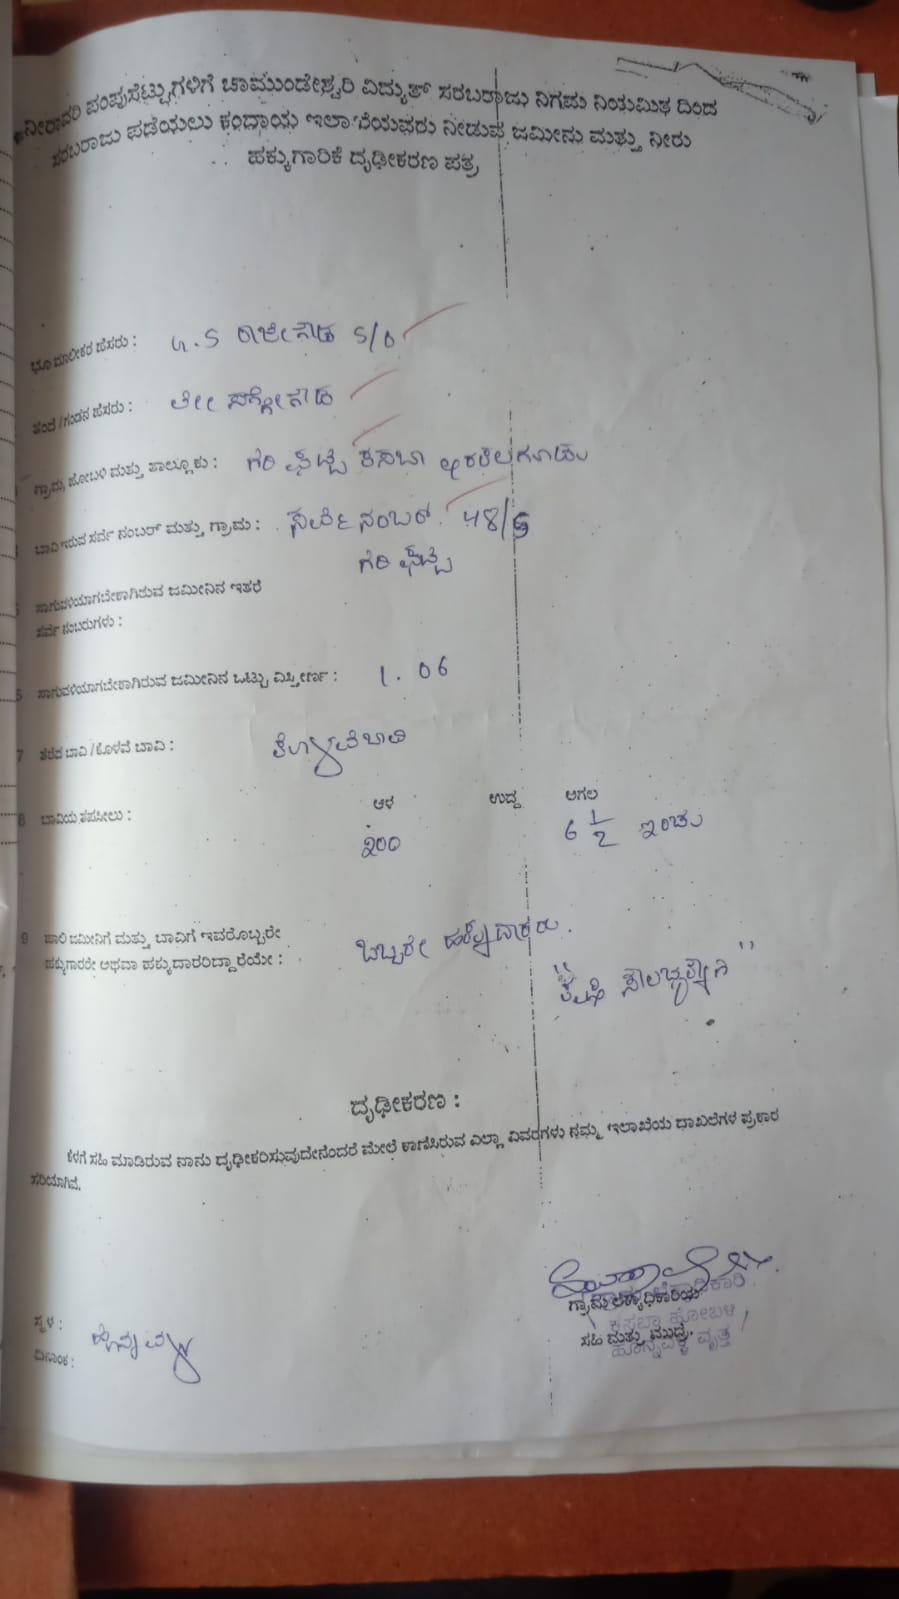 ನೀರಾವರಿ ಪಂಪುಸೆಟ್ಟುಗಳಿಗೆ ಚಾಮುಂಡೇಶ್ವರಿ ವಿದ್ಯುತ್ ಸರಬರಾಜು ನಿಗಮ ನಿಯಮಿತ ದಿಂದ
ಸರಬರಾಜು ಪಡೆಯಲು ಕಂದಾಯ ಇಲಾಖೆಯವರು ನೀಡುವ ಜಮೀನು ಮತ್ತು ನೀರು
ಹಕ್ಕುಗಾರಿಕೆ ದೃಢೀಕರಣ ಪತ್ರ
ಭೂ ಮಾಲೀಕರ ಹೆಸರು : ರಾಜೇಗೌಡ S/O
ತಂದೆ/ಗಂಡನ ಹೆಸರು :
ಗ್ರಾಮ, ಹೋಬಳಿ ಮತ್ತು ತಾಲ್ಲೂಕು : ಕಸಬಾ ಅರಕಲಗೂಡು
ಬಾವಿ ಇರುವ ಸರ್ವೆ ನಂಬರ್ ಮತ್ತು ಗ್ರಾಮ : ಸರ್ವೆ ನಂಬರ್ 48/5
5 ಸಾಗುವಳಿಯಾಗಬೇಕಾಗಿರುವ ಜಮೀನಿನ ಇತರೆ
ಸರ್ವೆ ನಂಬರುಗಳು :
6 ಸಾಗುವಳಿಯಾಗಬೇಕಾಗಿರುವ ಜಮೀನಿನ ಒಟ್ಟು ವಿಸ್ತೀರ್ಣ : 1.06
7 ತೆರೆದ ಬಾವಿ/ಕೊಳವೆ ಬಾವಿ : ಕೊಳವೆ ಬಾವಿ
8 ಬಾವಿಯ ತಪಸೀಲು : ಆಳ ಉದ್ದ ಅಗಲ
200 6 1/2 ಇಂಚು
9 ಹಾಲಿ ಜಮೀನಿಗೆ ಮತ್ತು ಬಾವಿಗೆ ಇವರೊಬ್ಬರೇ
ಹಕ್ಕುಗಾರರೇ ಅಥವಾ ಹಕ್ಕುದಾರರಿದ್ದಾರೆಯೇ : ಒಬ್ಬರೇ ಹಕ್ಕುದಾರರು.
"ಕೃಷಿ ಸೌಲಭ್ಯಕ್ಕಾಗಿ"
ದೃಢೀಕರಣ :
ಕೆಳಗೆ ಸಹಿ ಮಾಡಿರುವ ನಾನು ದೃಢೀಕರಿಸುವುದೇನೆಂದರೆ ಮೇಲೆ ಕಾಣಿಸಿರುವ ಎಲ್ಲಾ ವಿವರಗಳು ನಮ್ಮ ಇಲಾಖೆಯ ದಾಖಲೆಗಳ ಪ್ರಕಾರ
ಸರಿಯಾಗಿವೆ.
ಗ್ರಾಮ ಲೆಕ್ಕಾಧಿಕಾರಿಯ
ಸಹಿ ಮತ್ತು ಮುದ್ರೆ.
ಗ್ರಾಮ ಲೆಕ್ಕಾಧಿಕಾರಿ
ಕಸಬಾ ಹೋಬಳಿ
ಹೊನ್ನವಳ್ಳಿ ವೃತ್ತ
ಸ್ಥಳ : ಹೊನ್ನವಳ್ಳಿ
ದಿನಾಂಕ :